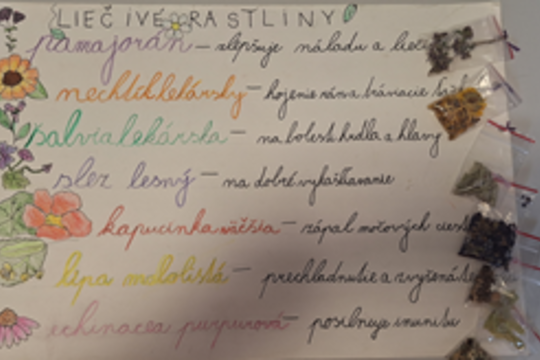 LIEČIVÉ RASTLINY
pamajorán – zlepšuje náladu a lieči
nechtík lekársky – hojenie rán a tráviacie
šalvia lekárska – na bolesti hrdla a hlavy
slez lesný – na dobré vykašliavanie
kapucínka väčšia – zápal močových ciest
lipa malolistá – prechladnutie a zvýšená
echinacea purpurová – posilnuje imunitu